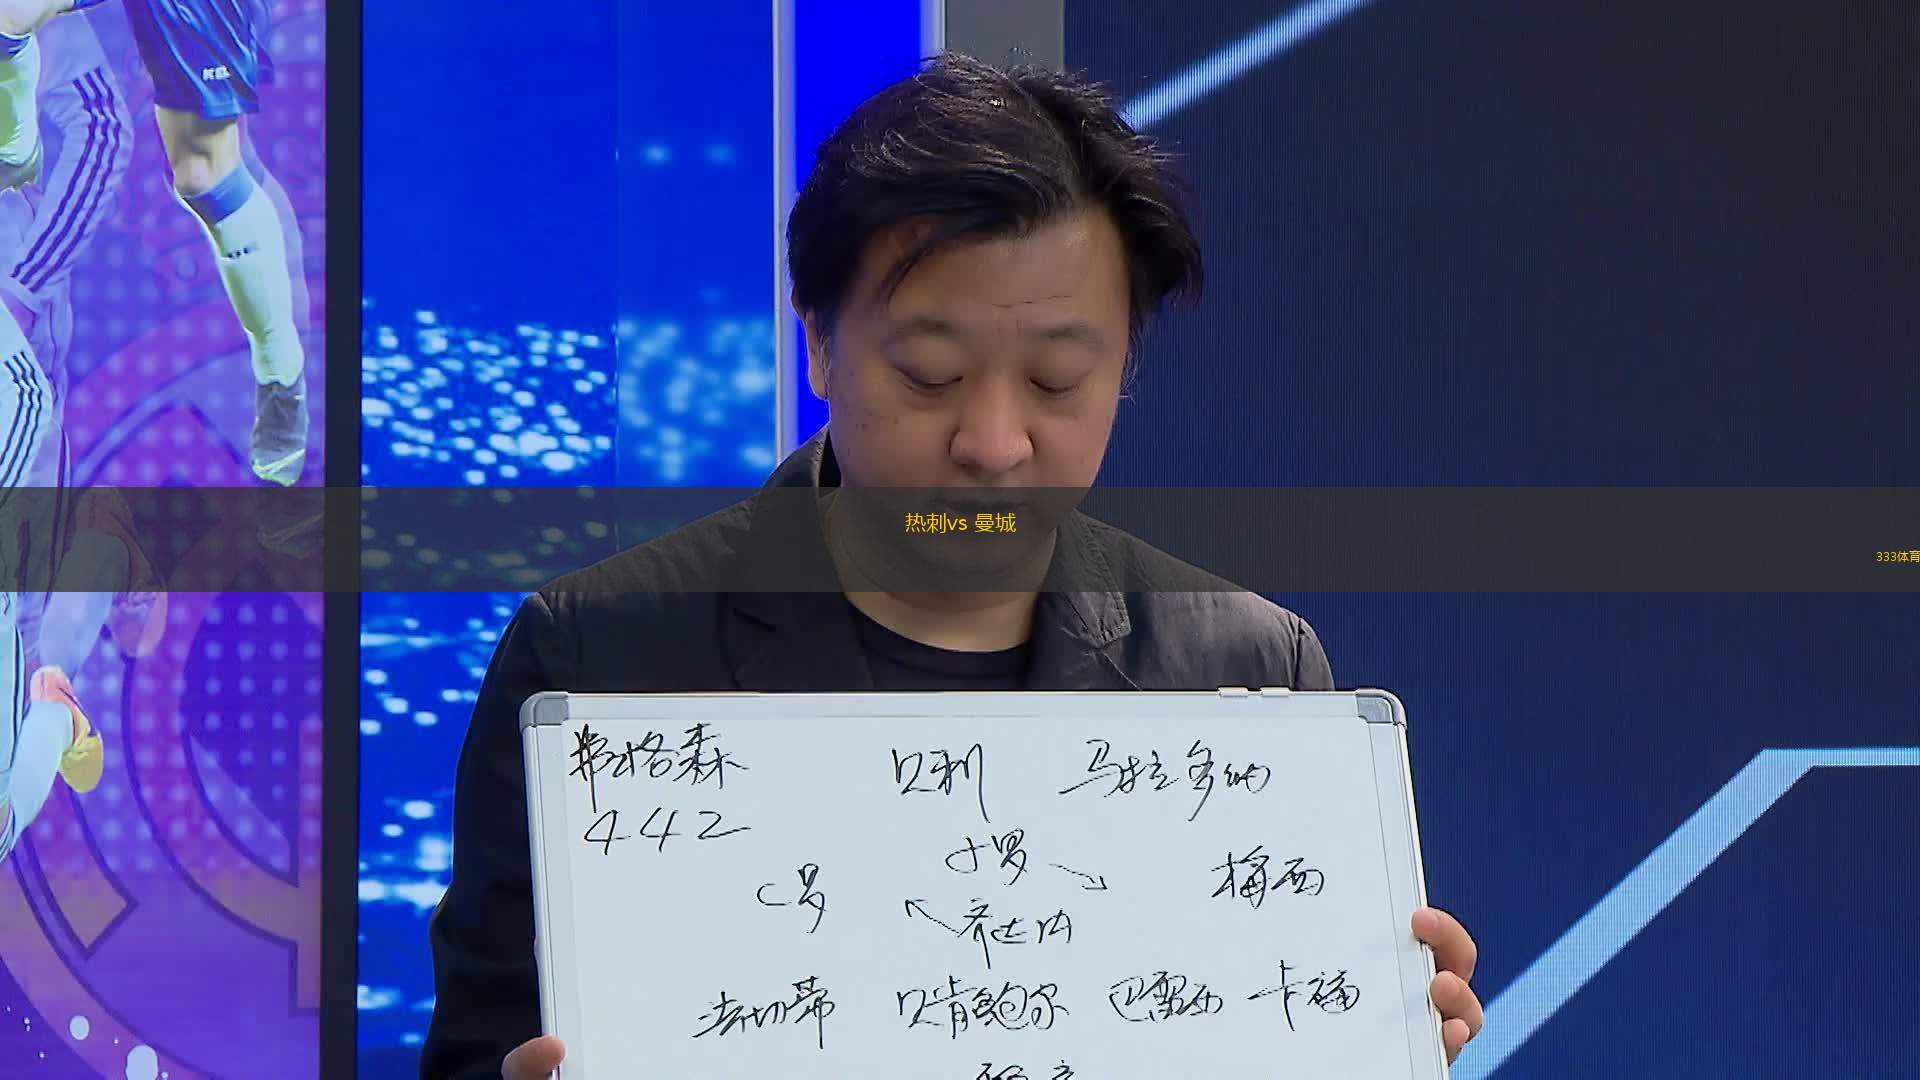 热刺vs 曼城
333体育
弗格森 贝利 马拉多纳
442
小罗
C罗 梅西
齐达内
法切蒂 贝肯鲍尔 巴雷西 卡福